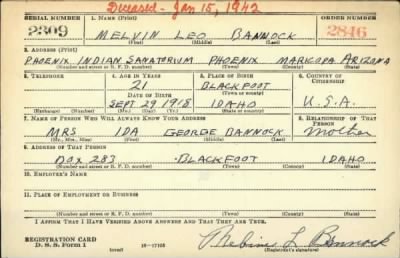 Deceased - Jan 15, 1942
SERIAL NUMBER 1. NAME (Print) ORDER NUMBER
2309 MELVIN LEO BANNOCK 2846
(First) (Middle) (Last)
2. ADDRESS (Print)
PHOENIX INDIAN SANATORIUM PHOENIX MARICOPA ARIZONA
(Number and street or R. F. D. number) (Town) (County) (State)
3. TELEPHONE 4. AGE IN YEARS 5. PLACE OF BIRTH 6. COUNTRY OF CITIZENSHIP
21 BLACKFOOT
DATE OF BIRTH (Town or county)
SEPT 29 1918 IDAHO U.S.A.
(Exchange) (Number) (Mo.) (Day) (Yr.) (State or country)
7. NAME OF PERSON WHO WILL ALWAYS KNOW YOUR ADDRESS 8. RELATIONSHIP OF THAT PERSON
MRS IDA GEORGE BANNOCK Mother
(Mr., Mrs., Miss) (First) (Middle) (Last)
9. ADDRESS OF THAT PERSON
BOX 283 BLACKFOOT IDAHO
(Number and street or R. F. D. number) (Town) (County) (State)
10. EMPLOYER'S NAME
11. PLACE OF EMPLOYMENT OR BUSINESS
(Number and street or R. F. D. number) (Town) (County) (State)
I AFFIRM THAT I HAVE VERIFIED ABOVE ANSWERS AND THAT THEY ARE TRUE.
REGISTRATION CARD
D. S. S. Form 1 (over) 16-17105 L Bannock
(Registrant's signature)